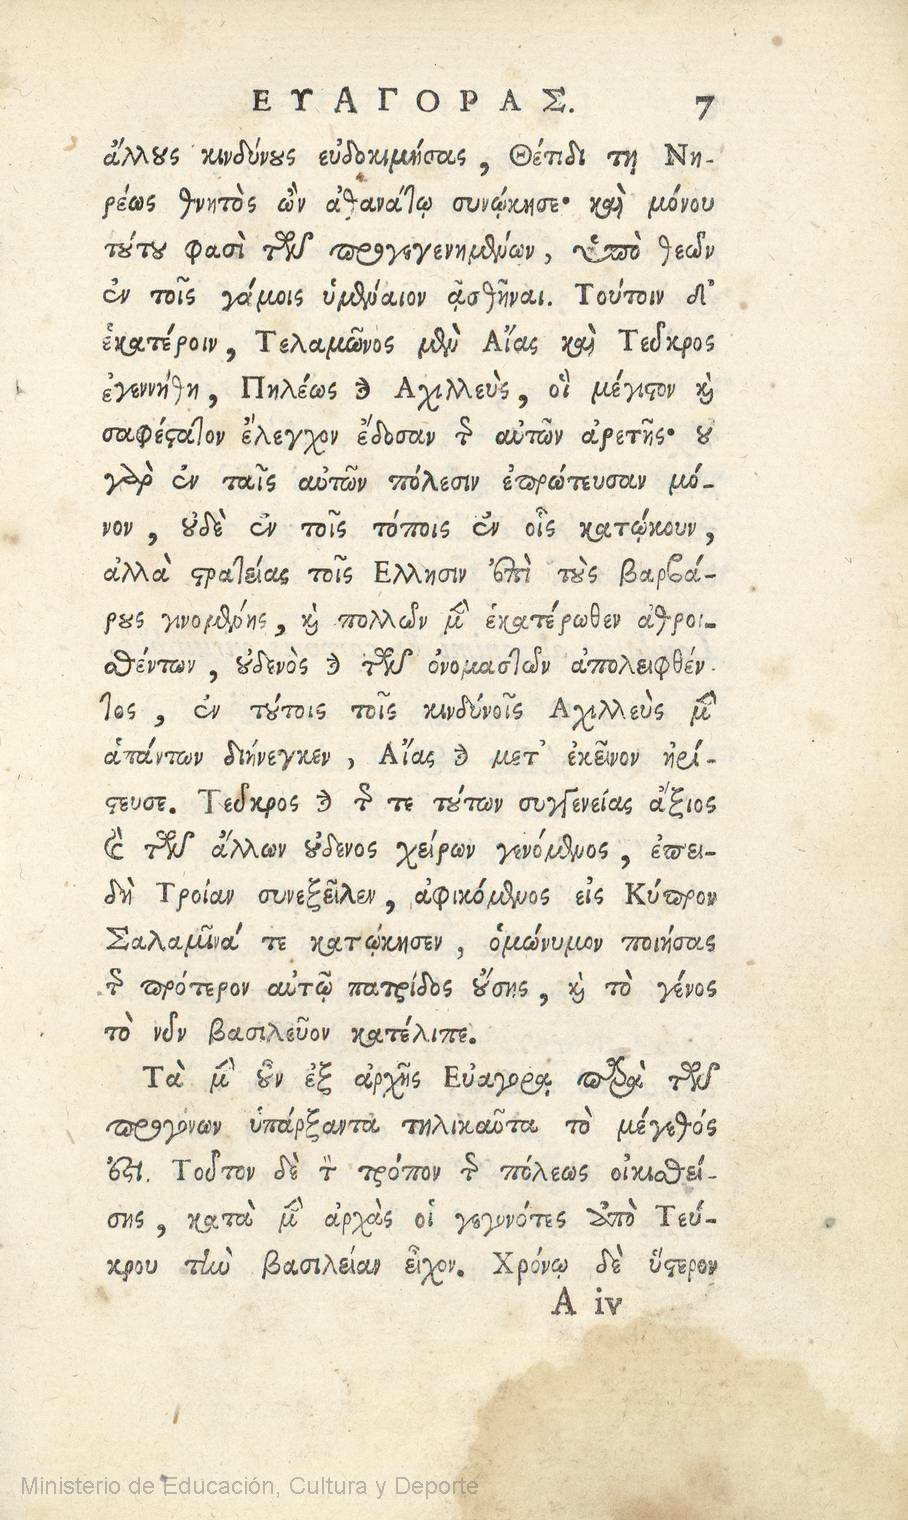 ΕΥΑΓΟΡΑΣ. 7
ἄλλους κινδύνους εὐδοκιμήσας, Θέτιδι τῇ Νη-
ρέως θνητὸς ὢν ἀθανάτῳ συνῴκησε· καὶ μόνου
τούτου φασὶ τῶν προγεγενημένων, ὑπὸ θεῶν
ἐν τοῖς γάμοις ὑμέναιον ᾀσθῆναι. Τούτοιν δ'
ἑκατέροιν, Τελαμῶνος μὲν Αἴας καὶ Τεῦκρος
ἐγεννήθη, Πηλέως δὲ Αχιλλεὺς, οἳ μέγιστον καὶ
σαφέστατον ἔλεγχον ἔδοσαν τῆς αὐτῶν ἀρετῆς· οὐ
γὰρ ἐν ταῖς αὐτῶν πόλεσιν ἐπρώτευσαν μό-
νον, οὐδὲ ἐν τοῖς τόποις ἐν οἷς κατῴκουν,
ἀλλὰ στρατείας τοῖς Ελλησιν ἐπὶ τοὺς βαρβά-
ρους γινομένης, καὶ πολλῶν μὲν ἑκατέρωθεν ἀθροι-
σθέντων, οὐδενὸς δὲ τῶν ὀνομαστῶν ἀπολειφθέν-
τος, ἐν τούτοις τοῖς κινδύνοις Αχιλλεὺς μὲν
ἁπάντων διήνεγκεν, Αἴας δὲ μετ' ἐκεῖνον ἠρί-
στευσε. Τεῦκρος δὲ τῆς τε τούτων συγγενείας ἄξιος
καὶ τῶν ἄλλων οὐδενος χείρων γενόμενος, ἐπει-
δὴ Τροίαν συνεξεῖλεν, ἀφικόμενος εἰς Κύπρον
Σαλαμῖνά τε κατῴκησεν, ὁμώνυμον ποιήσας
τῆς πρότερον αὐτῷ πατρίδος οὔσης, καὶ τὸ γένος
τὸ νῦν βασιλεῦον κατέλιπε.
Τὰ μὲν οὖν ἐξ ἀρχῆς Εὐαγόρᾳ παρὰ τῶν
προγόνων ὑπάρξαντα τηλικαῦτα τὸ μέγεθός
ἐστι. Τοῦτον δὲ τὸν τρόπον τῆς πόλεως οἰκισθεί-
σης, κατὰ μὲν ἀρχὰς οἱ γεγονότες ἀπὸ Τεύ-
κρου τὴν βασιλείαν εἶχον. Χρόνῳ δὲ ὕστερον
A iv
Ministerio de Educación, Cultura y Deporte